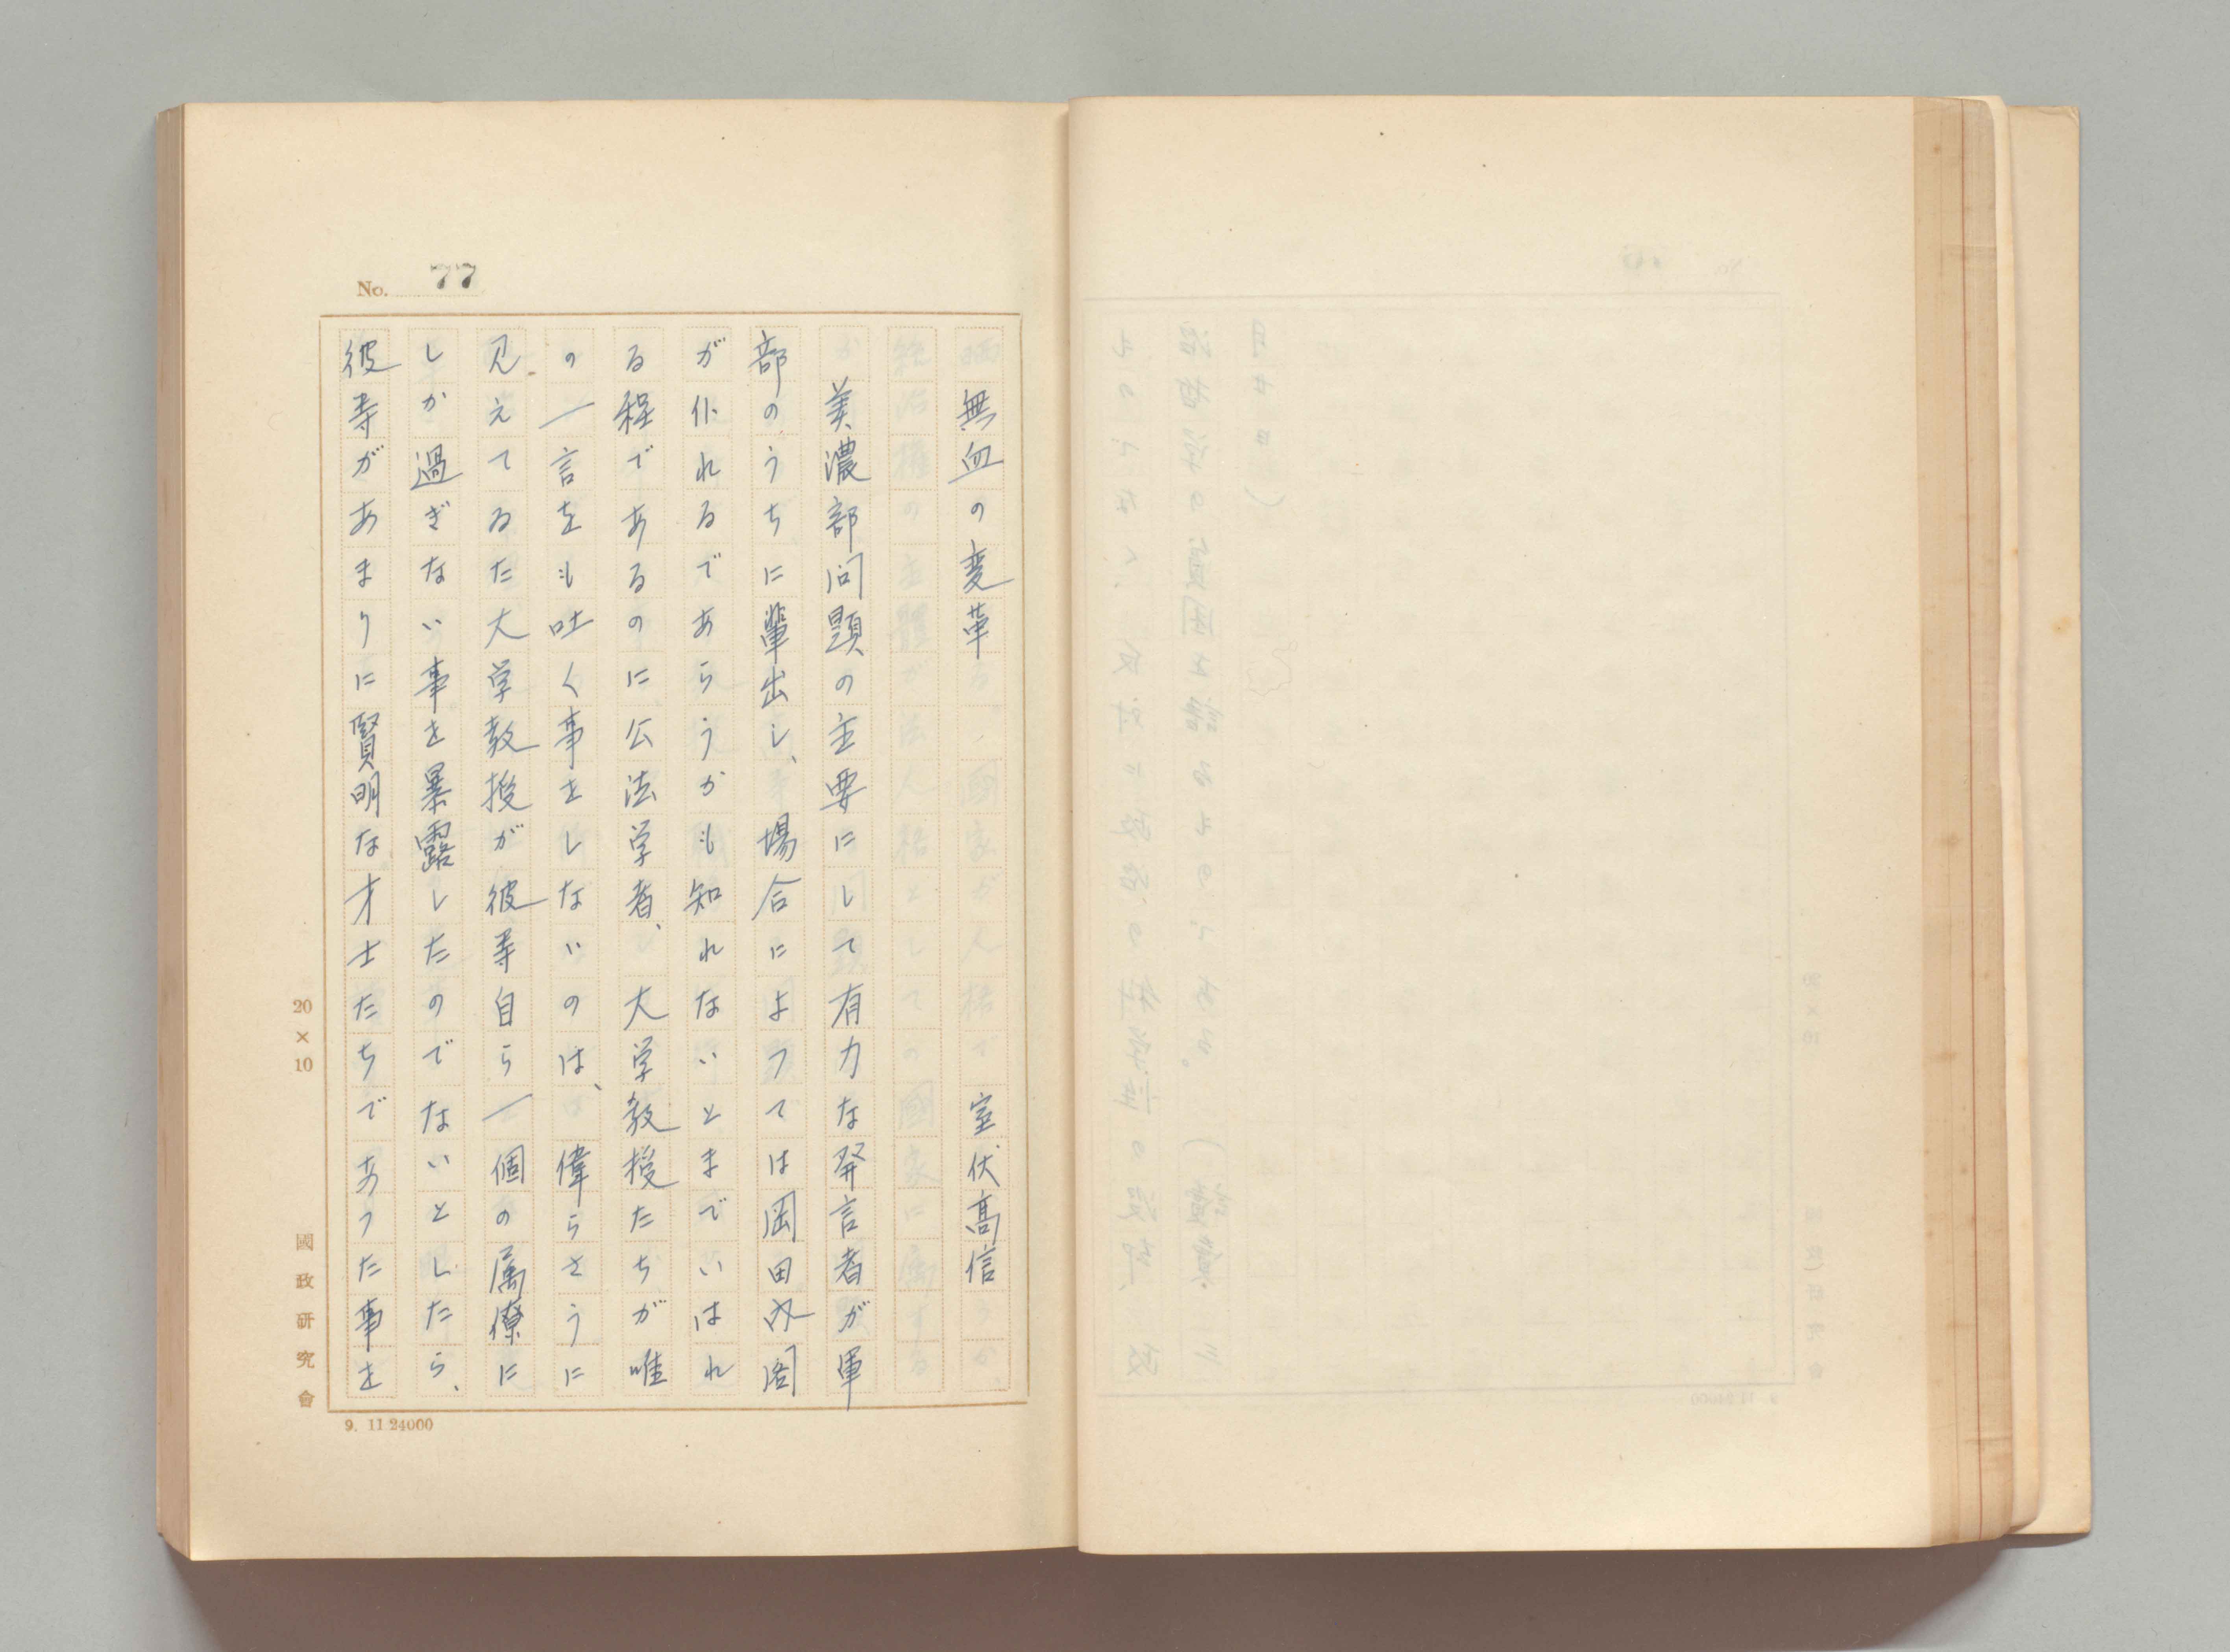 No. 77
無血の変革　室伏高信
美濃部問題の主要にして有力な発言者が軍
部のうちに輩出し、場合によつては岡田内閣
が仆れるであらうかも知れないとまでいはれ
る程であるのに公法学者、大学教授たちが唯
の一言をも吐く事をしないのは、偉らさうに
見えてゐた大学教授が彼等自ら一個の属僚に
しか過ぎない事を暴露したのでないとしたら、
彼等があまりに賢明な才士たちであつた事を
20×10
國政研究會
9. 11 24000